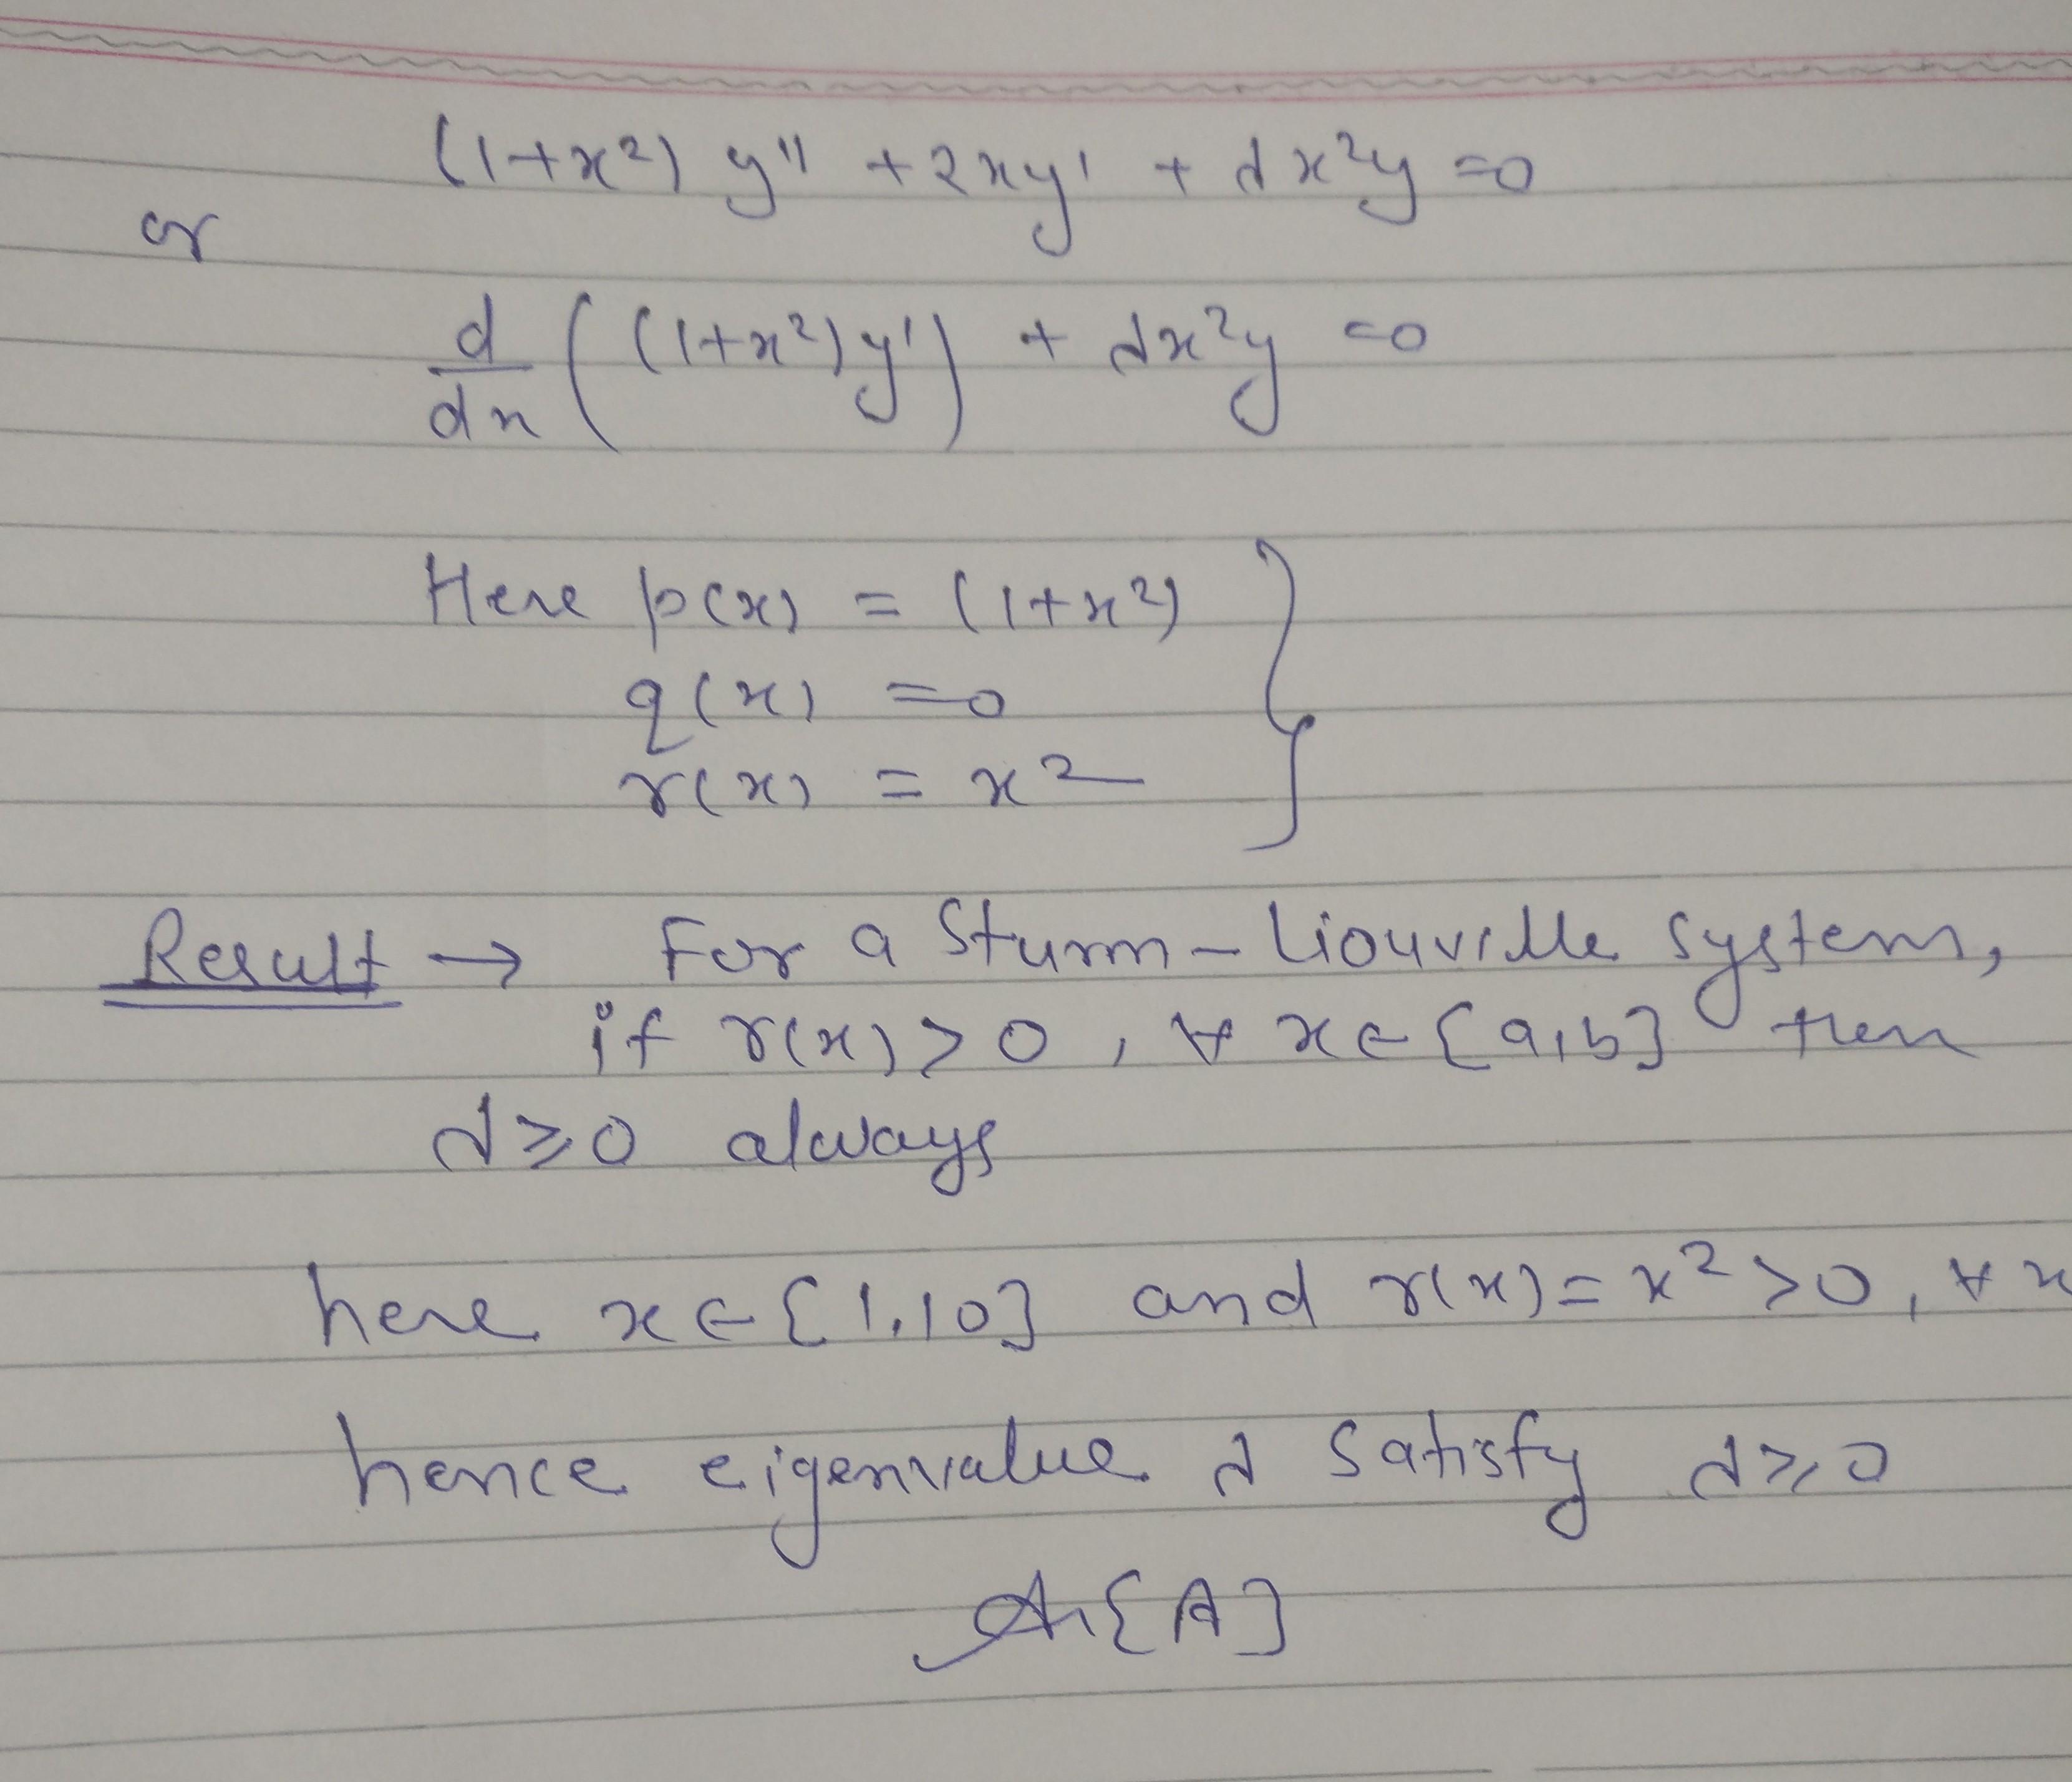 (1+x²) y'' + 2xy' + λx²y = 0
or
d/dx ((1+x²)y') + λx²y = 0
Here p(x) = (1+x²)
q(x) = 0
r(x) = x²
Result → For a Sturm-Liouville system,
if r(x) > 0, ∀ x ∈ [a,b] then
λ ≥ 0 always
here x ∈ [1,10] and r(x) = x² > 0, ∀ x
hence eigenvalue λ satisfy λ ≥ 0
[A]